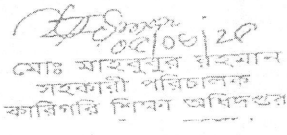 ০৫/০৮/২৫
মোঃ মাহবুবুর রহমান
সহকারী পরিচালক
কারিগরি শিক্ষা অধিদপ্তর